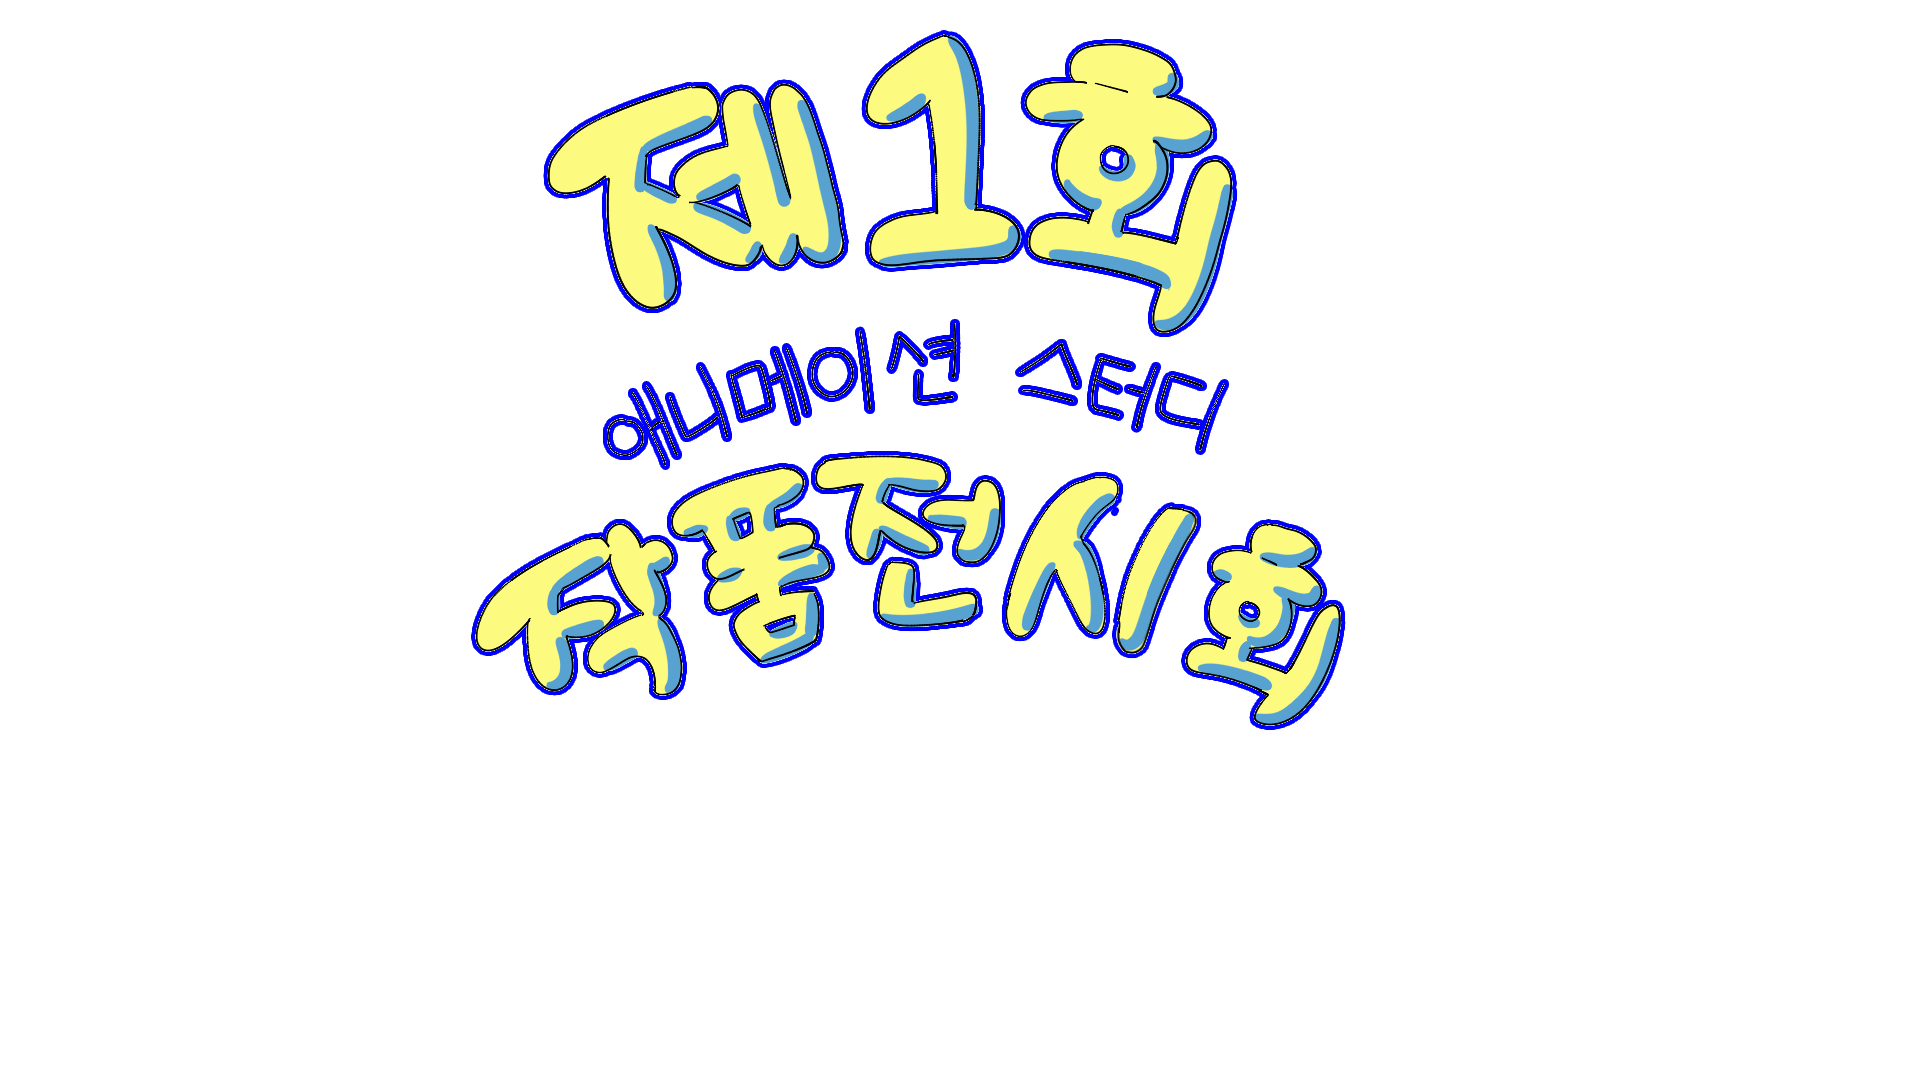 제1회
애니메이션 스터디
작품전시회